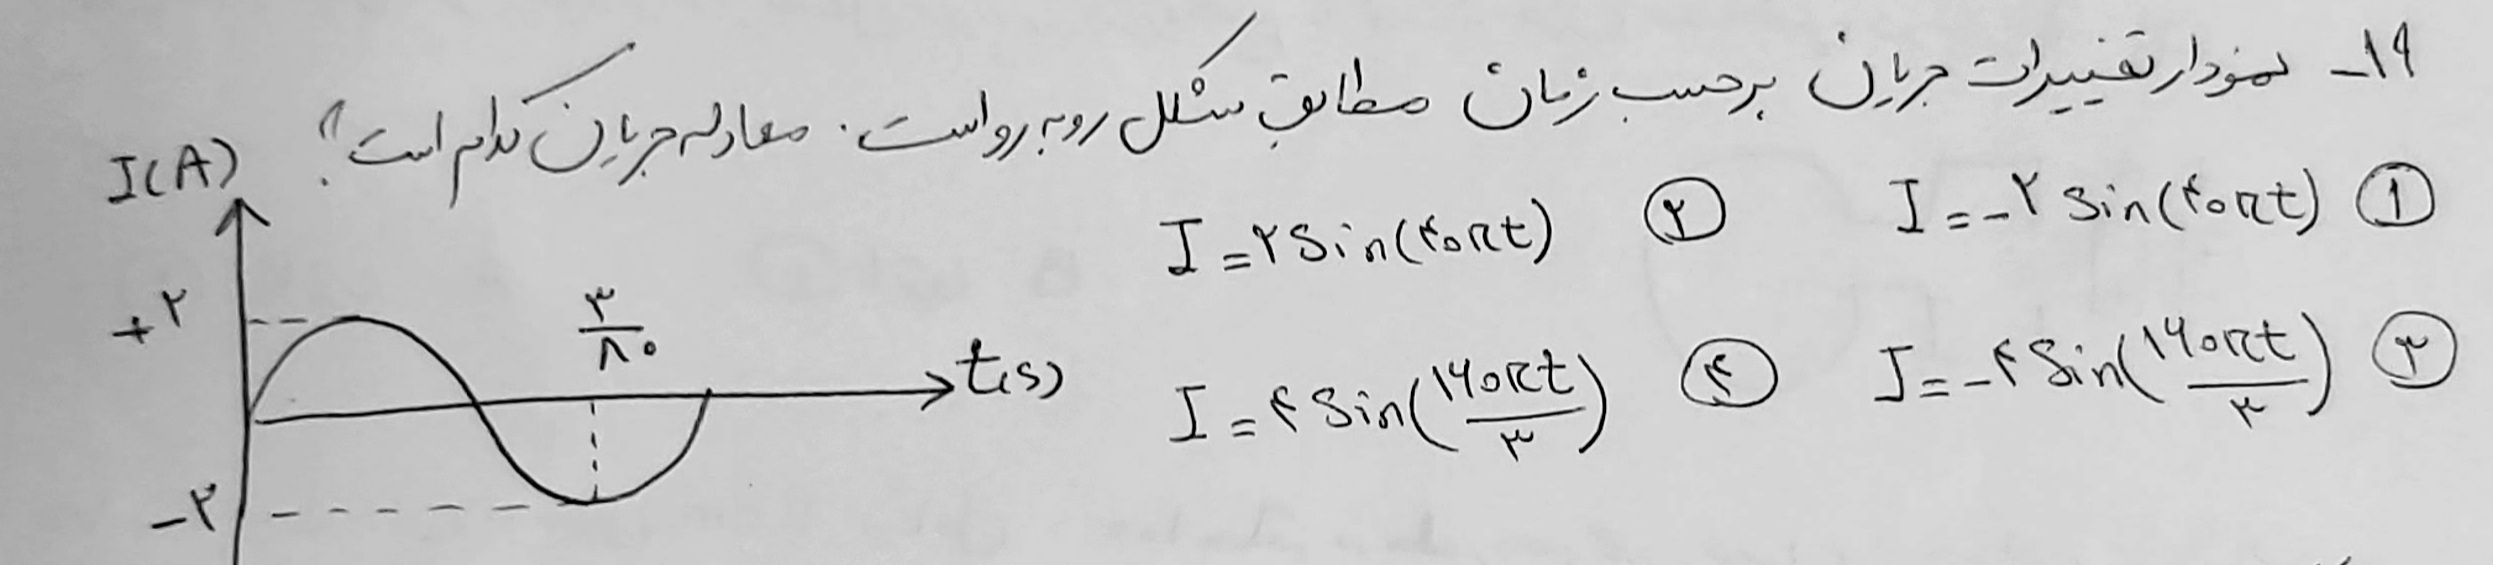 ۱۹- نمودار تغییرات جریان برحسب زمان مطابق شکل روبه رواست. معادله جریان کدام است؟
① I = -۲ Sin(۴۰πt)
② I = ۲ Sin(۴۰πt)
③ I = -۴ Sin(۱۶۰πt/۳)
④ I = ۴ Sin(۱۶۰πt/۳)
I(A)
+۲
۳/۸۰
t(s)
-۲